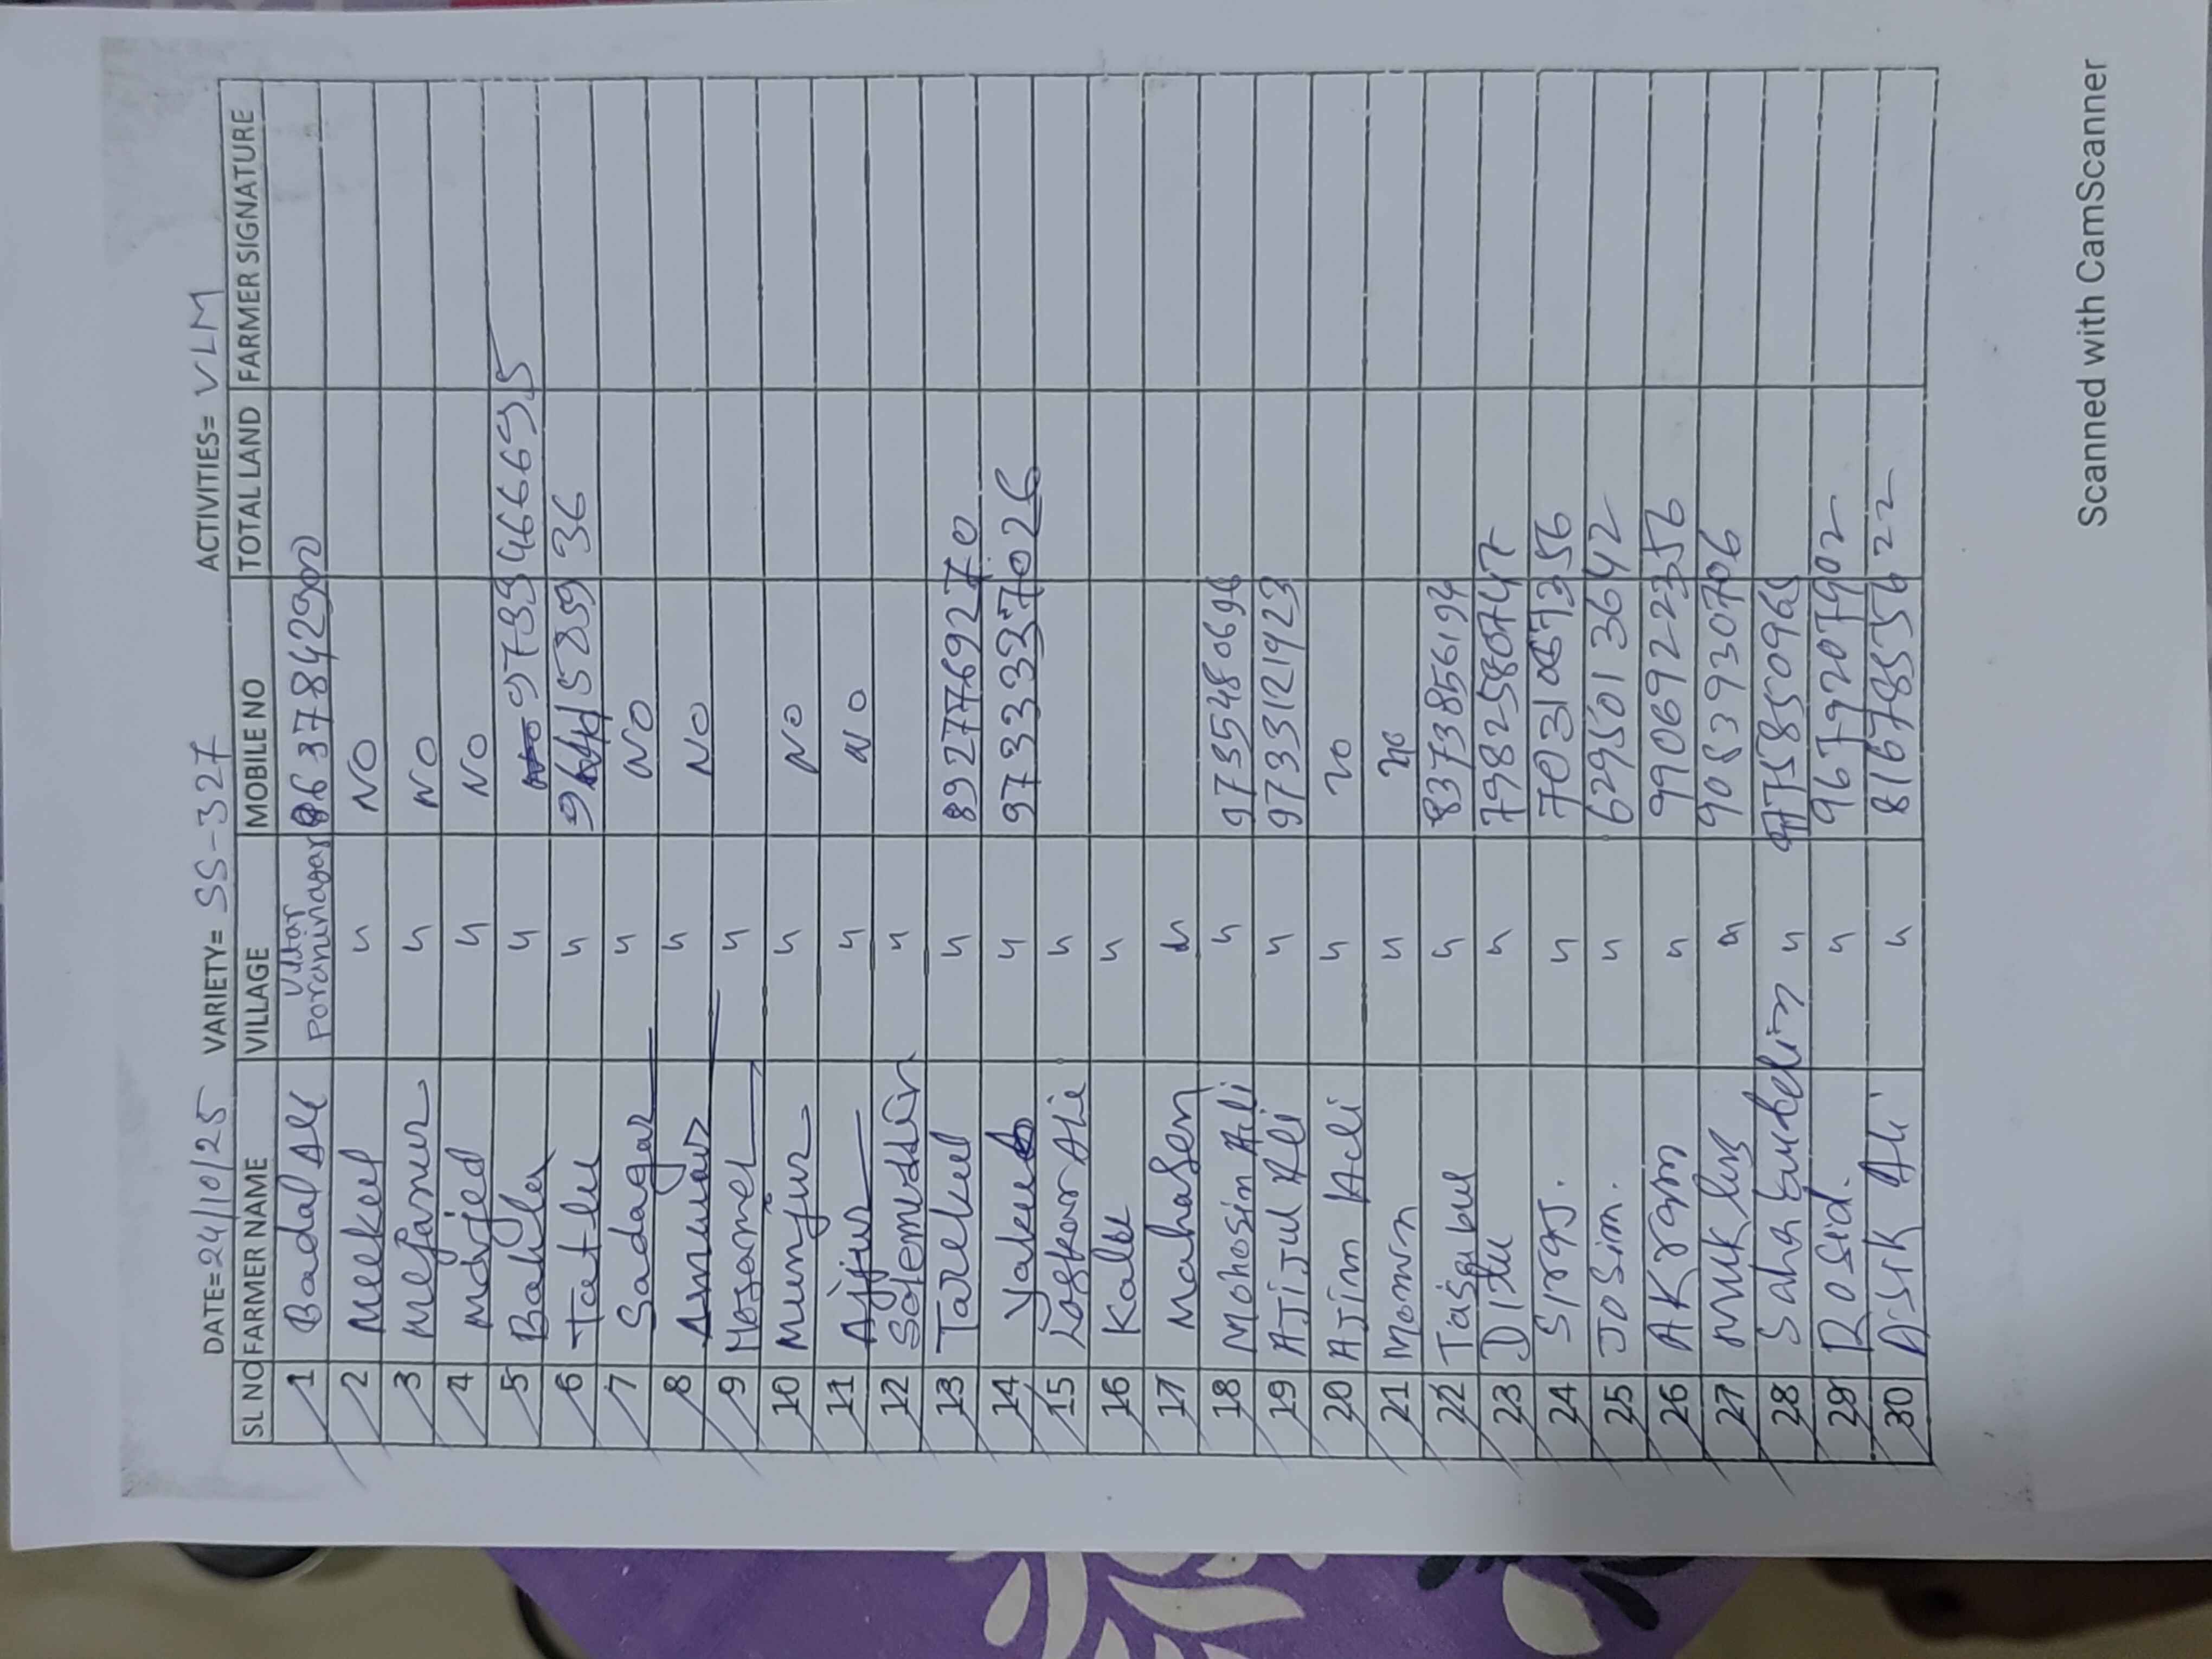 DATE=24/10/25 VARIETY= SS-327 ACTIVITIES= VLM
SL NO FARMER NAME VILLAGE MOBILE NO TOTAL LAND FARMER SIGNATURE
1 Badal Ali Uttar Poraninagar 8637842900
2 Meekul 〃 NO
3 Melfanur 〃 NO
4 Mdsjed 〃 NO
5 Babула 〃 9733466695
6 Tatlu 〃 36
7 Sadagar 〃 NO
8 Anuwar 〃 NO
9 Mosamel 〃
10 Munjur 〃 NO
11 Ajijur 〃 NO
12 Solemuddin 〃
13 Tarekul 〃 8927769270
14 Yakub 〃 97333937026
15 Loskor Ali 〃
16 Kalu 〃
17 Mahasen 〃
18 Mohosin Ali 〃 9735480696
19 Ajijul Ali 〃 9733121923
20 Ajim Ali 〃 no
21 Momin 〃 no
22 Tajbul 〃 8373856194
23 Ditu 〃 7982580747
24 Siraj. 〃 7031067356
25 Josim. 〃 6295013642
26 AKram 〃 9906922356
27 Muklus 〃 9083930706
28 Sahabuddin 〃 9775850965
29 Rosid. 〃 9679207902
30 Asik Ali 〃 8167855622
Scanned with CamScanner